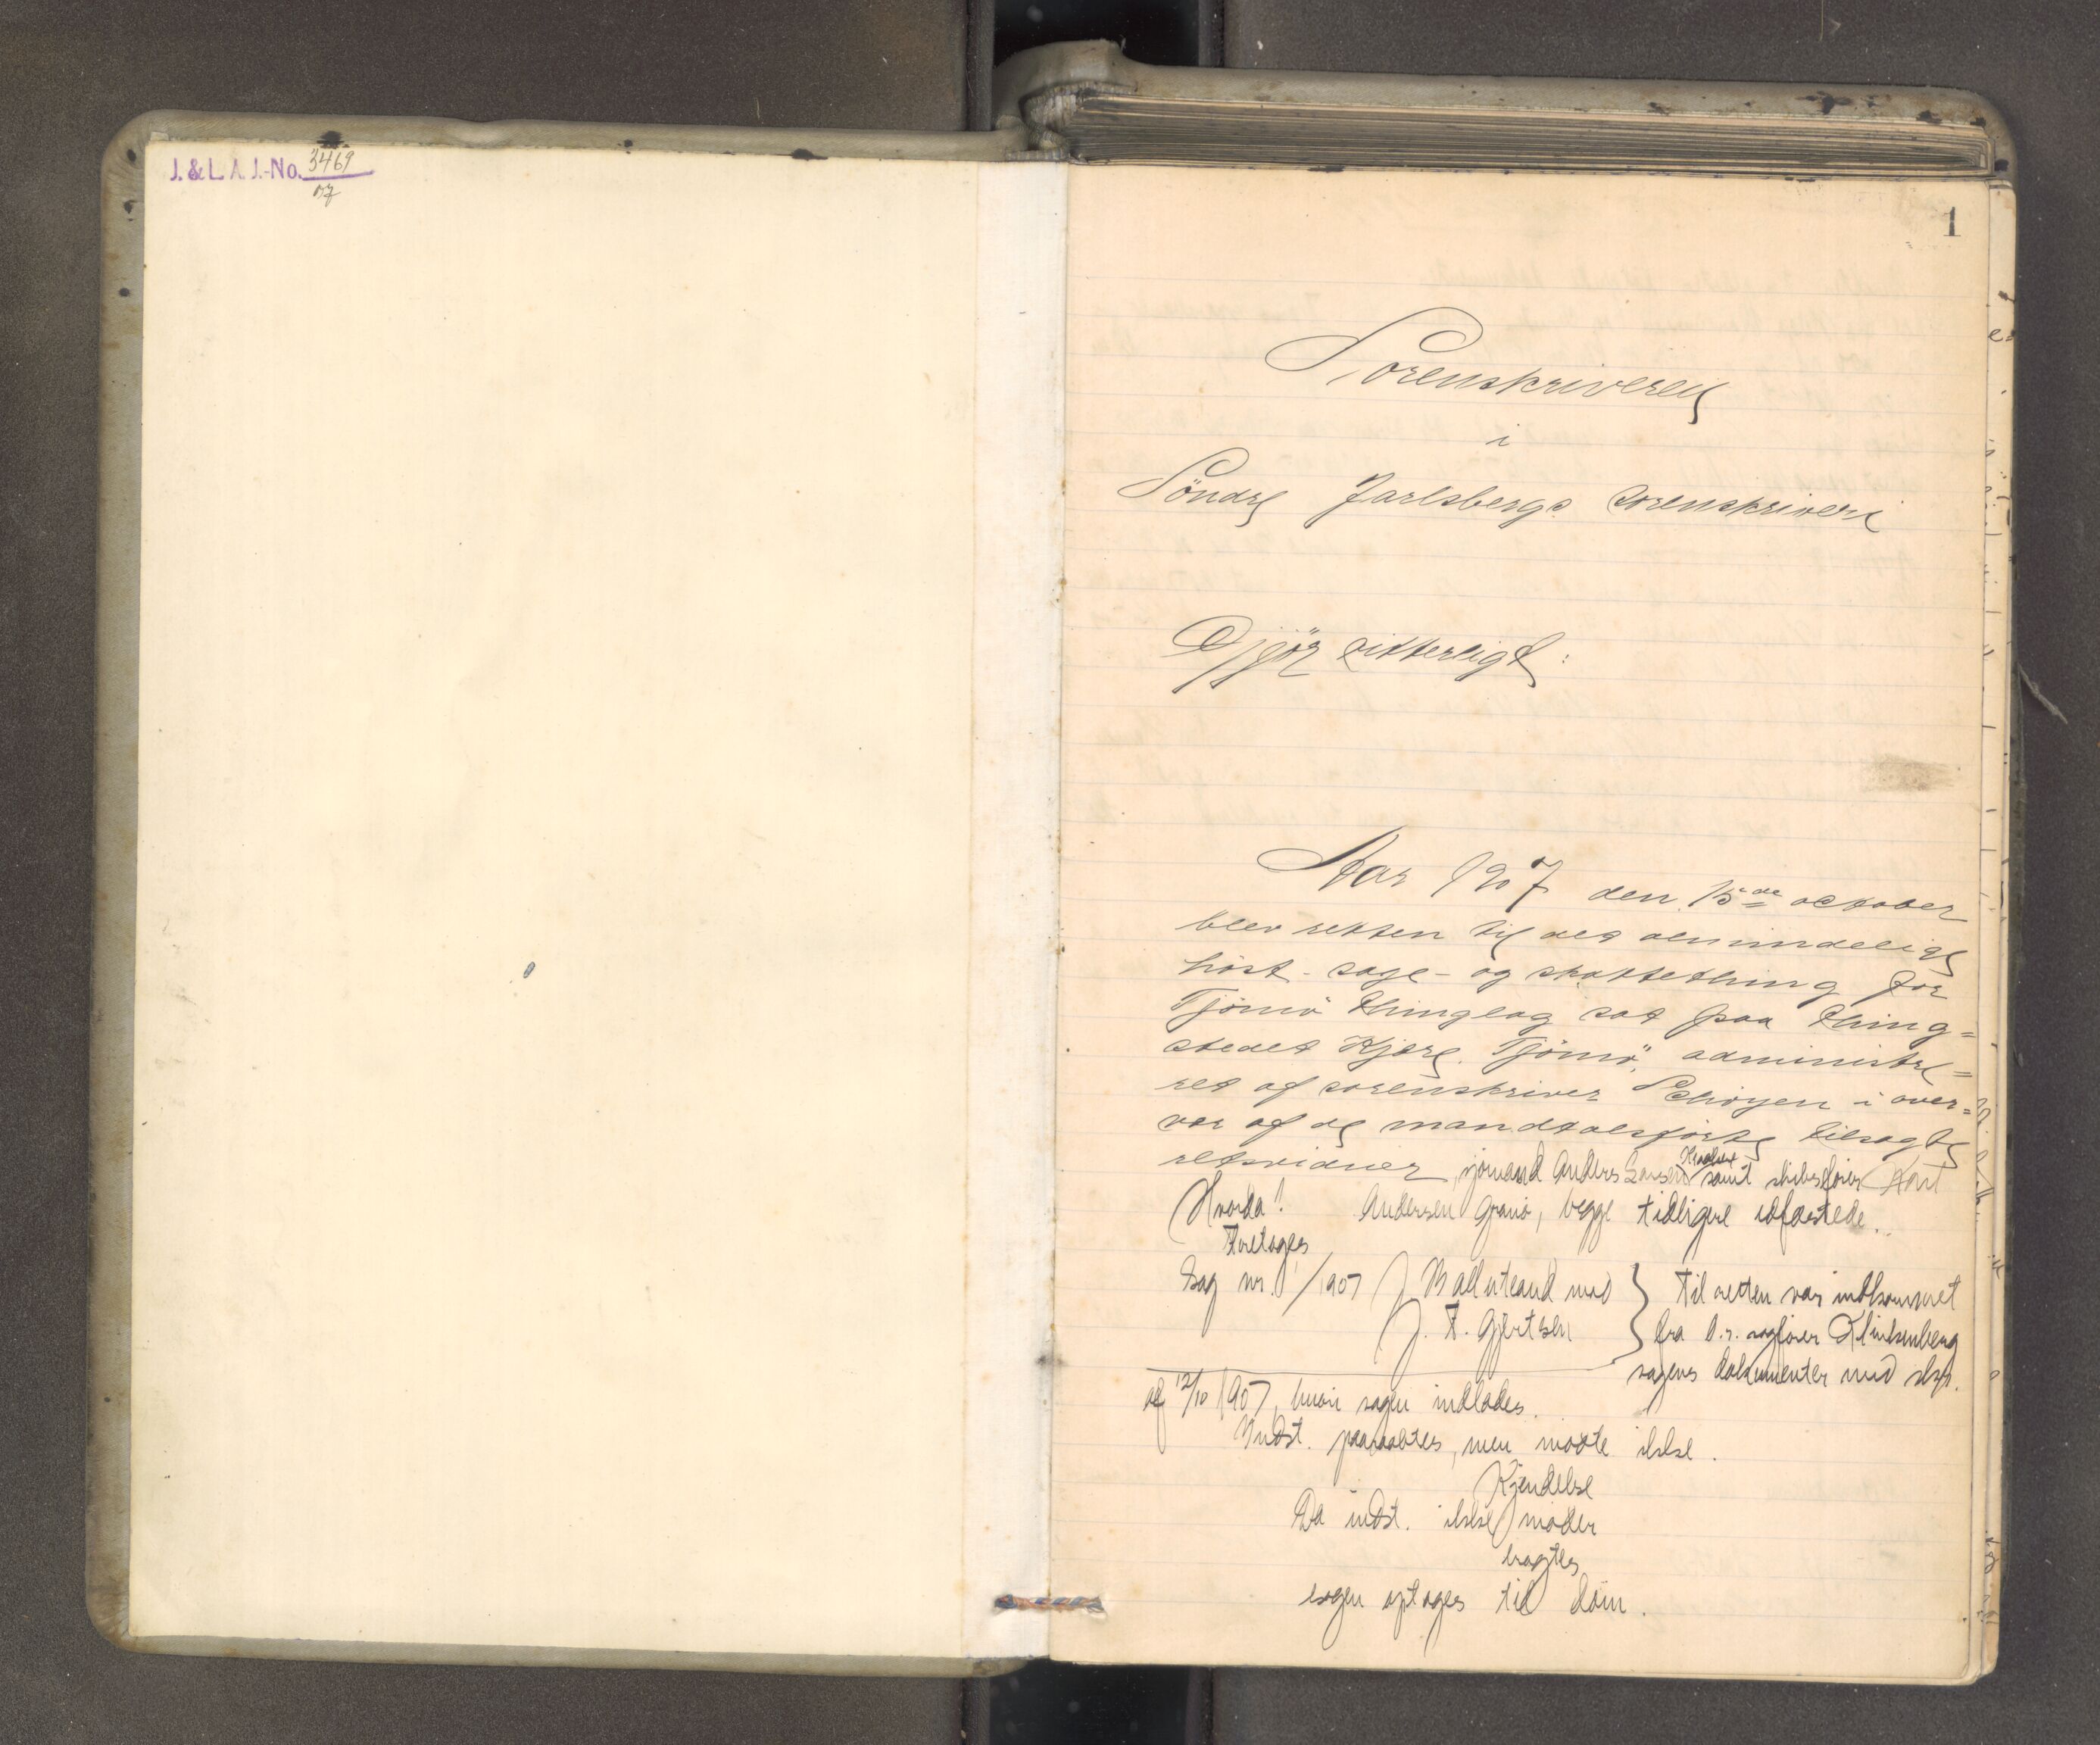 J. & L. A. J.-No. 3469
07
1
Sorenskriveren
i
Söndre Jarlsbergs sorenskriveri
Gjör vitterligt:
Aar 1907 den 15de october
blev retten til det almindelige
höst- sage- og skattething for
Tjömö thinglag sat paa thing=
stedet Kjære, Tjömö, administre=
ret af sorenskriver Schöyen i over=
vær af de mandtalsförte tilsagte
retsvidner, sjömand Anders Larsen samt skibsförer
Hvorda! Andersen Granö, begge tidligere edfæstede.
Foretages
Sag nr. /1907 J mod Til retten var indkommet
J. F. Gjertsen fra o.r. sagförer Klinkenberg
sagens dokumenter med skr.
af 12/10 1907, hvori sagen indlades.
Indst. paaraabtes, men mödte ikke.
Kjendelse
Da indst. ikke möder
bragtes
sagen optages til dom.